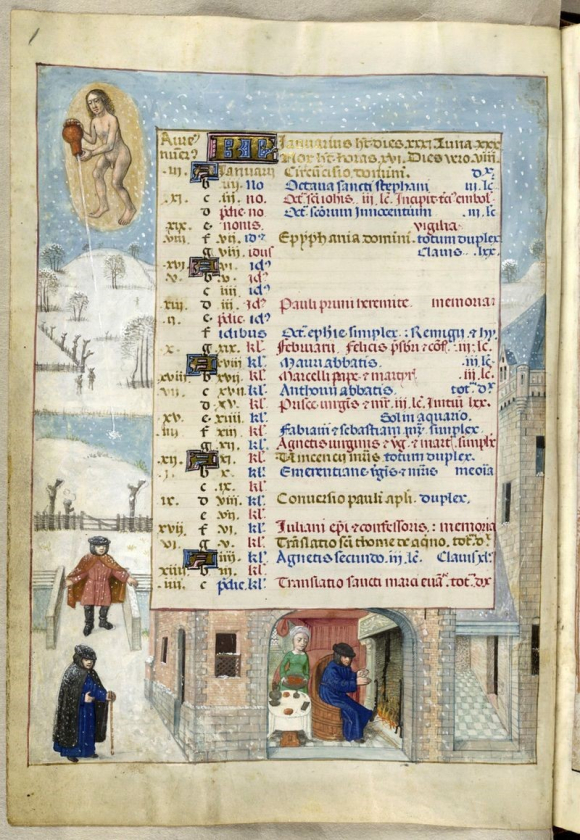 Januarius ht dies xxxi Luna xxx
Nox ht horas xvi. Dies vero viii.
.iii. A Januarii Circūcisio domini. dx
b iiii no Octaua sancti stephani iii. lc
.xi. c iii. no. Oct. sci iohis. iii. lc. Incipit
d pdie no. Oct. scōrum Innocentum .iii. lc
xix. e nonis. vigilia
viii. f viii. idꝰ Epyphania domini. totum duplex
g vii. idus Clauis .lxx.
xvi A vi. idꝰ
v. b v. idꝰ
c iiii. idꝰ
xiii d iii. idꝰ Pauli primi heremite memoria
.ii. e pdie idꝰ
f idibus Oct. ephie simplex : Remigii
.x. g xix. kl. februarii. felicis .iii. lc.
A xviii kl. Mauri abbatis. iii lc
xviii b xvii. kl. Marcelli pape et martyris iii. lc
vii. c xvi. kl. Anthonii abbatis tot. dx
d xv. kl. Prisce virgis iii. lc. Initiū lxx.
xv. e xiiii. kl. Sol in aquario.
iiii. f xiii. kl. Fabiani et sebastiani simplex
g xii. kl. Agnetis uirginis simplx
.xii. A xi. kl. Vincencii totum duplex.
.i. b x. kl. Emerentiane memoīa
c ix. kl.
ix. d viii. kl. Conuersio pauli apli. duplex.
e vii. kl.
xvii. f vi. kl. Iuliani epi et confessoris : memoria
vi. g v. kl. Trāslatio sci thome de aqino, tot. dx
A iiii. kl. Agnetis secundo. iii. lc. Clauis xl.
xiiii b iii. kl.
.iii. c pdie. kl. Translatio sancti marci tot. dx